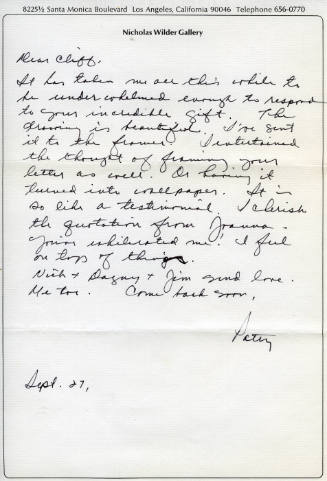 8225½ Santa Monica Boulevard Los Angeles, California 90046 Telephone 656-0770
Nicholas Wilder Gallery
Dear Cliff,
It has taken me all this while to
be underwhelmed enough to respond
to your incredible gift. The
drawing is beautiful. I've sent
it to the framer. I entertained
the thought of framing your
letter as well. Or having it
turned into wallpaper. It is
so like a testimonial. I cherish
the quotation from Joanna.
Yours exhilarated me! I feel
on top of things.
Nick + Dagny + Jim send love.
Me too. Come back soon,
Patsy
Sept. 27,